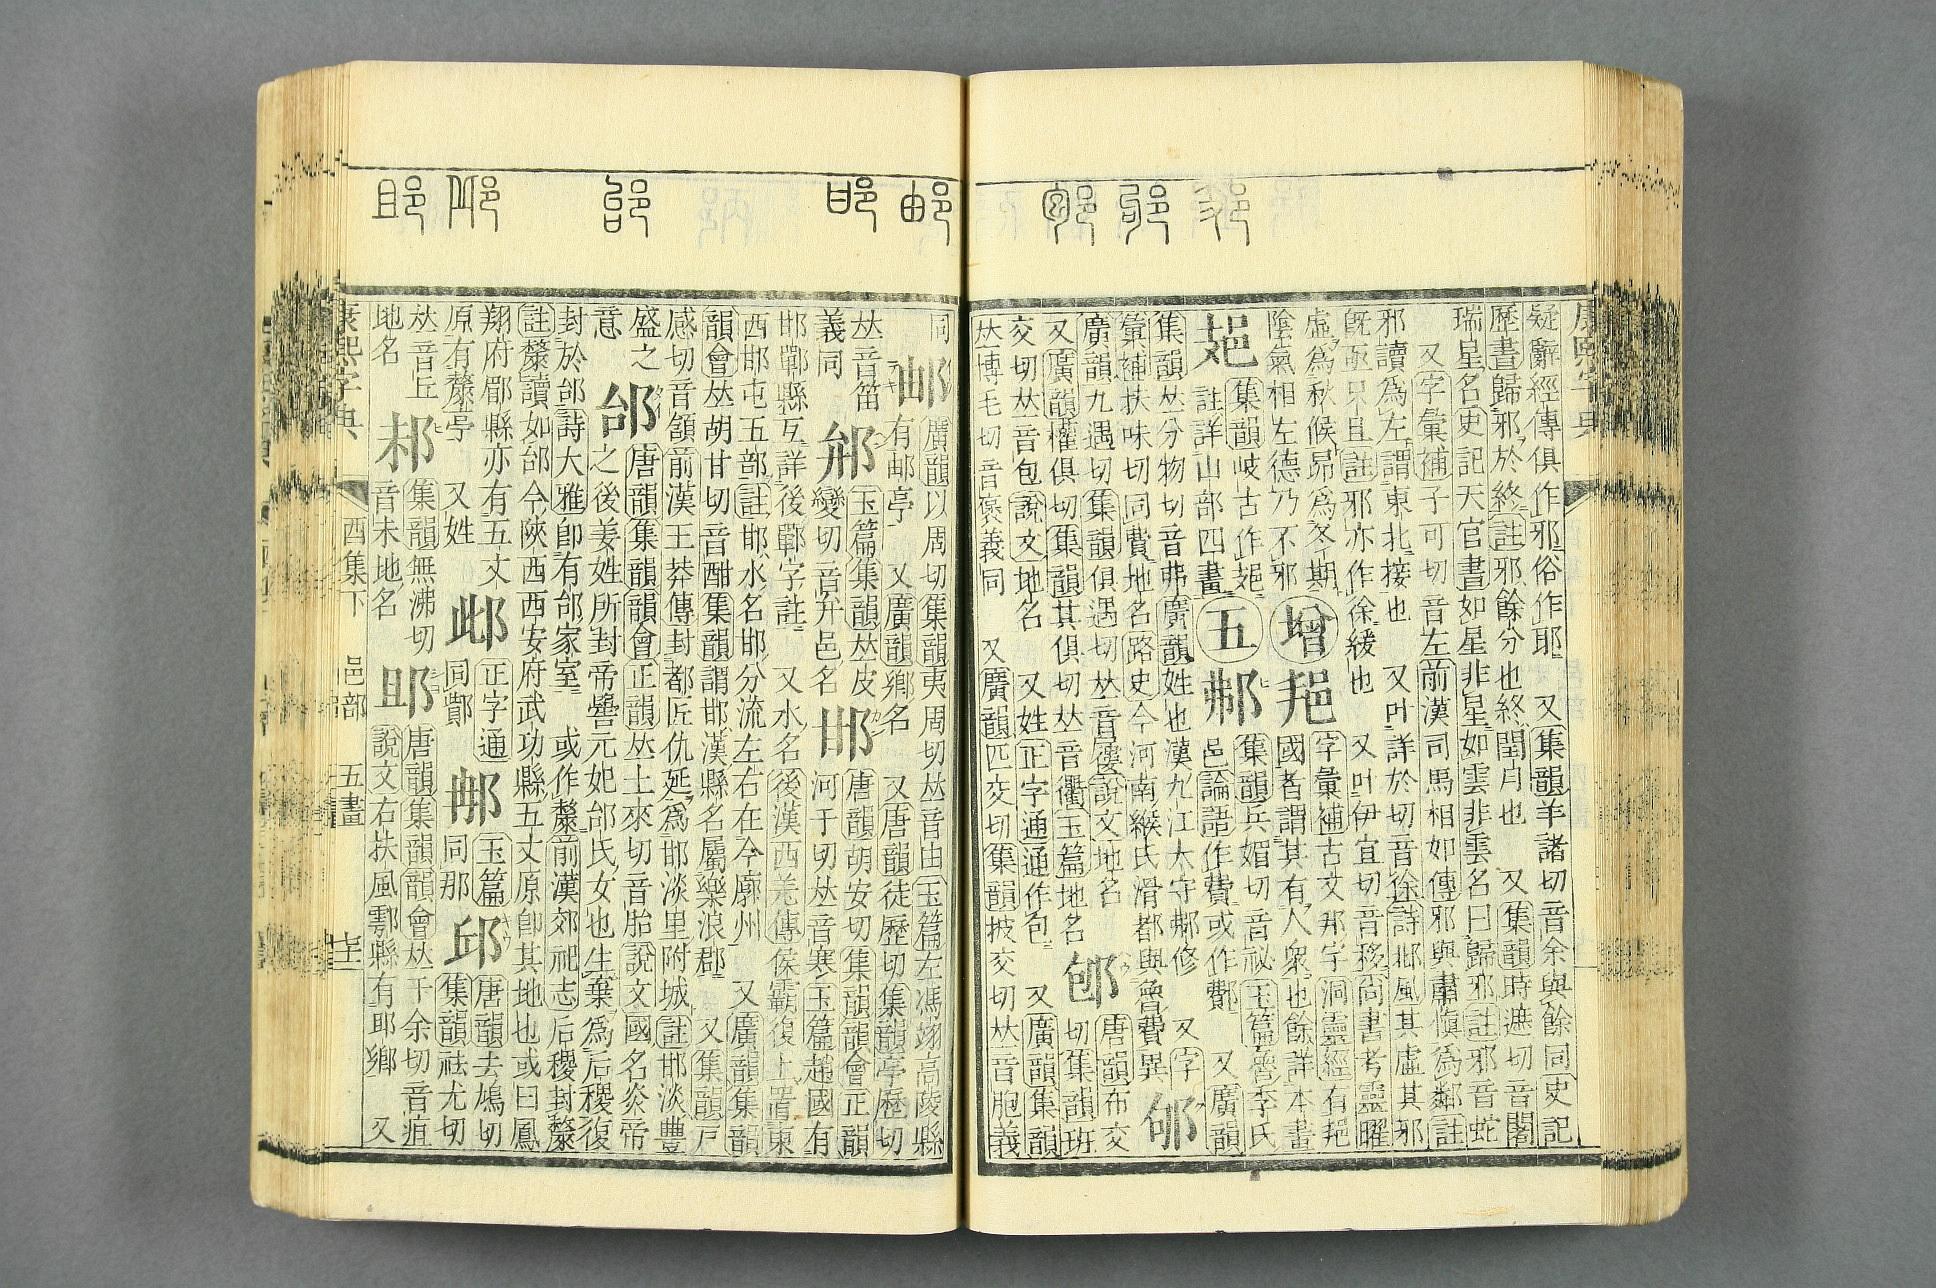 康熙字典
疑辭經傳俱作邪俗作耶 又集韻羊諸切音余與餘同史記
歷書歸邪於終註邪餘分也終閏月也 又集韻時遮切音闍
瑞星名史記天官書如星非星如雲非雲名曰歸邪註邪音蛇
又字彙補子可切音左前漢司馬相如傳邪與肅慎爲鄰註
邪讀爲左謂東北接也 又叶詳於切音徐詩邶風其虛其邪
旣亟只且註邪亦作徐緩也 又叶伊宜切音移尚書考靈曜
虛爲秋候昴爲冬期
陰氣相左德乃不邪
增
字彙補古文那字洞靈經有
國者謂其有人衆也餘詳本畫
集韻岐古作
註詳山部四畫
五
集韻兵媚切音祕玉篇魯季氏
邑論語作費或作鄪 又廣韻
集韻𠀤分物切音弗廣韻姓也漢九江太守 修 又字
彙補扶味切同費地名路史今河南緱氏滑都與魯費異
邭
廣韻九遇切集韻俱遇切𠀤音屨說文地名
又廣韻權俱切集韻其俱切𠀤音衢玉篇地名
唐韻布交
切集韻班
交切𠀤音包說文地名 又姓正字通通作包 又廣韻集韻
𠀤博毛切音襃義同 又廣韻匹交切集韻披交切𠀤音胞義
同
邮
廣韻以周切集韻夷周切𠀤音由玉篇左馮翊高陵縣
有邮亭 又廣韻鄉名 又唐韻徒歷切集韻亭歷切
𠀤音笛
義同
玉篇集韻𠀤皮
變切音弁邑名
邯
唐韻胡安切集韻韻會正韻
河干切𠀤音寒玉篇趙國有
邯鄲縣互詳後鄲字註 又水名後漢西羌傳侯霸復上置東
西邯屯五部註邯水名邯分流左右在今廓州 又廣韻集韻
韻會𠀤胡甘切音酣集韻謂邯漢縣名屬樂浪郡 又集韻戸
感切音頷前漢王莽傳封都匠仇延爲邯淡里附城註邯淡豐
盛之
意
邰
唐韻集韻韻會正韻𠀤土來切音胎說文國名炎帝
之後姜姓所封帝嚳元妃邰氏女也生棄爲后稷復
封於邰詩大雅卽有邰家室 或作斄前漢郊祀志后稷封斄
註斄讀如邰今陝西西安府武功縣五丈原卽其地也或曰鳳
翔府郿縣亦有五丈
原有斄亭 又姓
正字通
同酆
玉篇
同那
邱
唐韻去鳩切
集韻祛尤切
𠀤音丘
地名
集韻無沸切
音未地名
唐韻集韻韻會𠀤千余切音疽
說文右扶風鄠縣有 鄉 又
康熙字典
酉集下
邑部
五畫